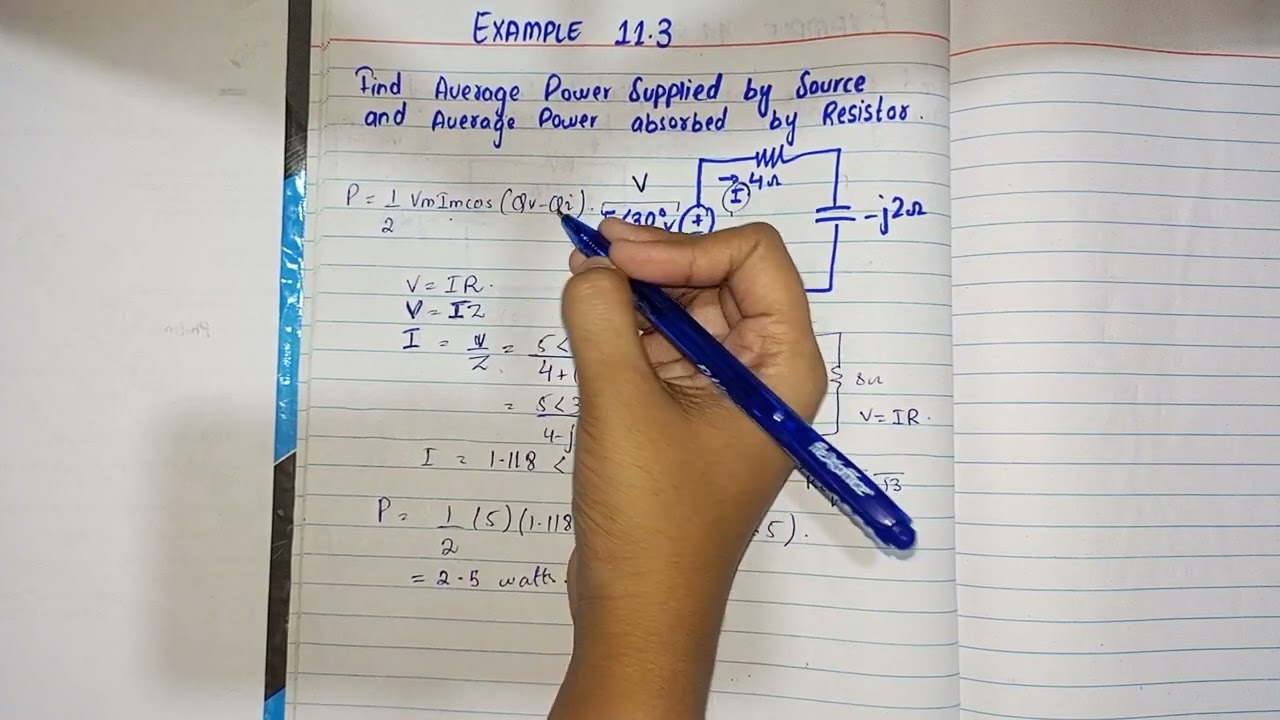 EXAMPLE 11.3
Find Average Power Supplied by Source
and Average Power absorbed by Resistor.
P = 1/2 VmImcos (θv-θi).
V
5<30°V
+
I
4Ω
-j2Ω
V = IR.
V = IZ
I = V/Z = 5< / 4+(
= 5<3 / 4-j
I = 1.118 <
8Ω
V = IR.
P = 1/2 (5)(1.118
5).
= 2.5 watts.